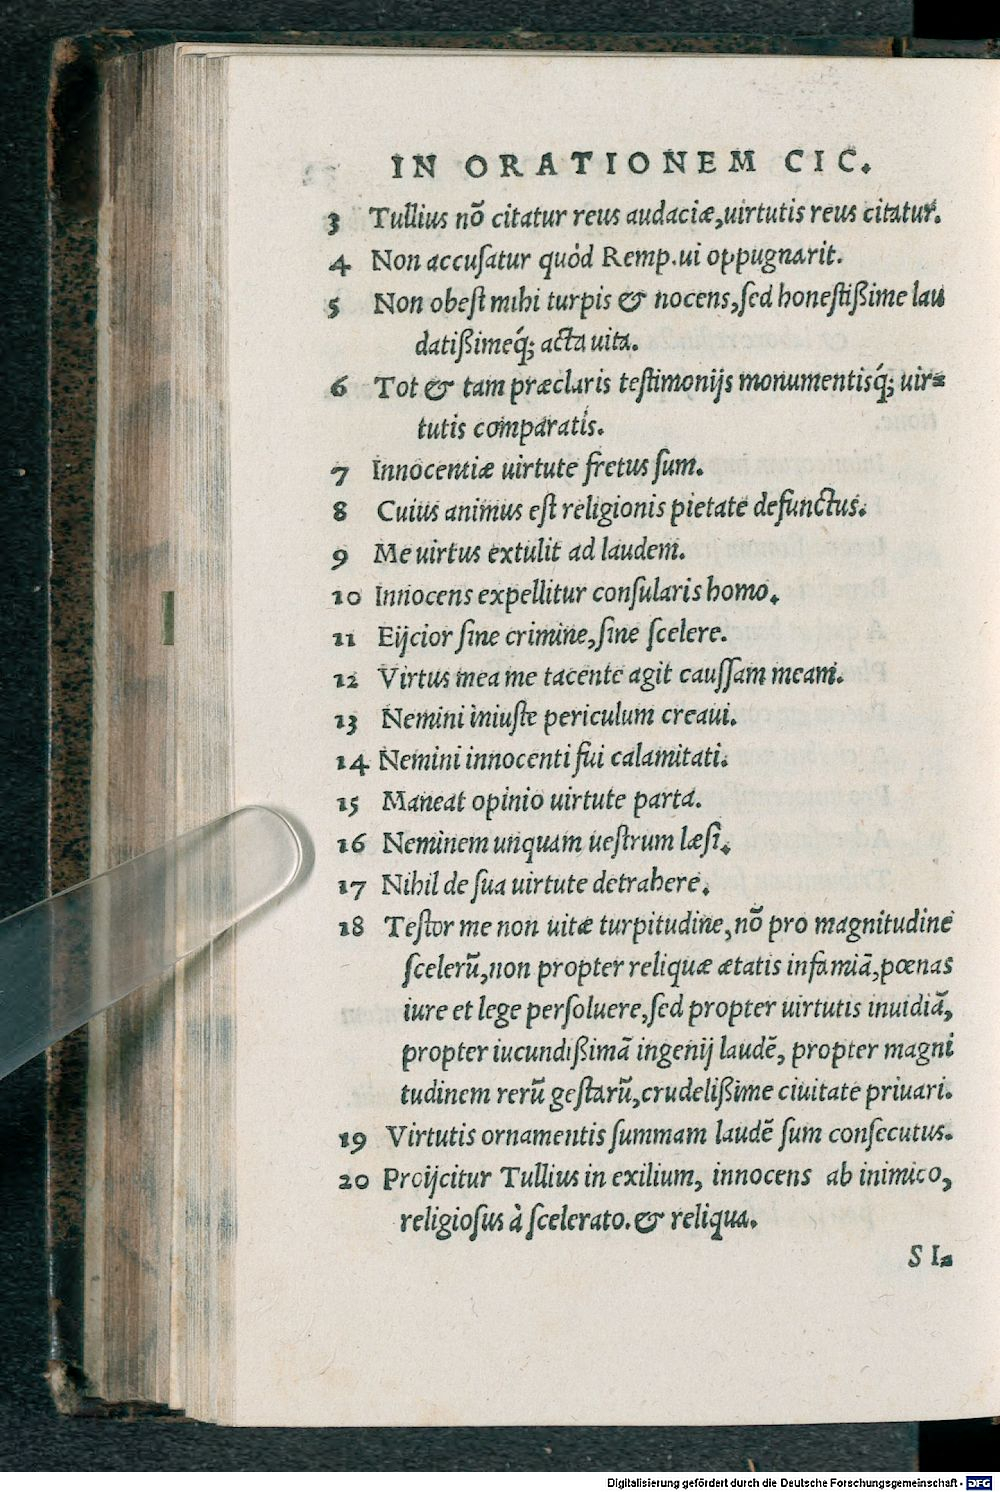 IN ORATIONEM CIC.
3 Tullius nõ citatur reus audaciæ, uirtutis reus citatur.
4 Non accuſatur quòd Remp. ui oppugnarit.
5 Non obeſt mihi turpis & nocens, ſed honeſtißime lau
datißimeq́; acta uita.
6 Tot & tam præclaris teſtimonijs monumentisq́; uir=
tutis comparatis.
7 Innocentiæ uirtute fretus ſum.
8 Cuius animus eſt religionis pietate defunctus.
9 Me uirtus extulit ad laudem.
10 Innocens expellitur conſularis homo.
11 Eijcior ſine crimine, ſine ſcelere.
12 Virtus mea me tacente agit cauſſam meam.
13 Nemini iniuſte periculum creaui.
14 Nemini innocenti fui calamitati.
15 Maneat opinio uirtute parta.
16 Neminem unquam ueſtrum læſi.
17 Nihil de ſua uirtute detrahere.
18 Teſtor me non uitæ turpitudine, nõ pro magnitudine
ſcelerũ, non propter reliquæ ætatis infamiã, pœnas
iure et lege perſoluere, ſed propter uirtutis inuidiã,
propter iucundißimã ingenij laudẽ, propter magni
tudinem rerũ geſtarũ, crudelißime ciuitate priuari.
19 Virtutis ornamentis ſummam laudẽ ſum conſecutus.
20 Proijcitur Tullius in exilium, innocens ab inimico,
religioſus à ſcelerato. & reliqua.
SI=
Digitalisierung gefördert durch die Deutsche Forschungsgemeinschaft - DFG